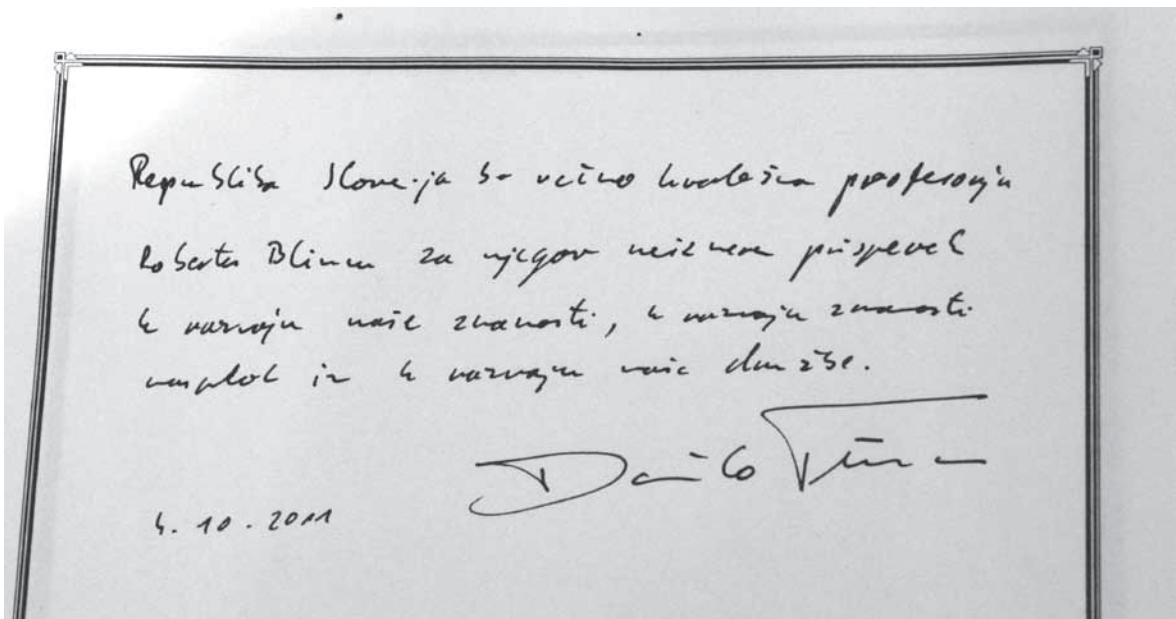 Republika Slovenija bo večno hvaležna profesorju
Robertu Blincu za njegov neizmeren prispevek
k razvoju naše znanosti, k razvoju znanosti
nasploh in k razvoju naše družbe.
Danilo Türk
4. 10. 2011